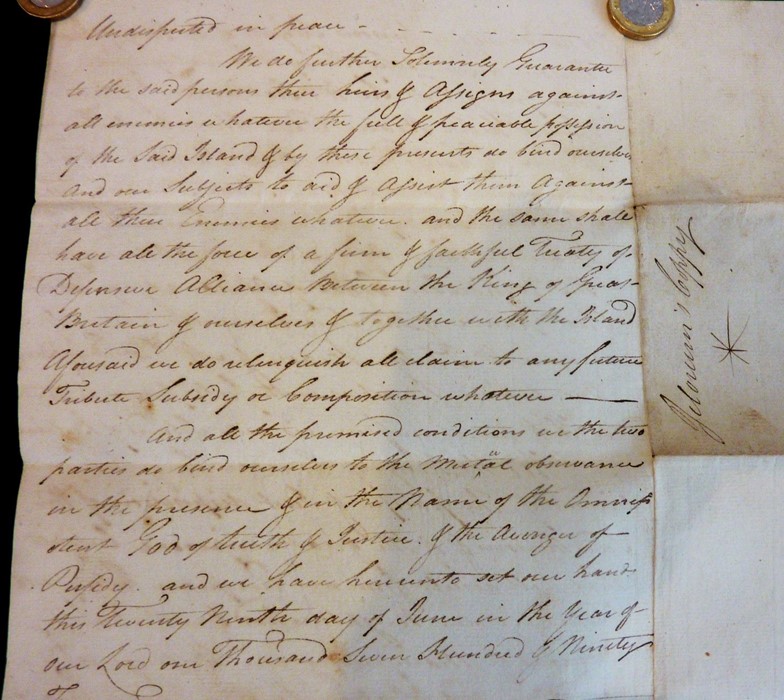 Undisputed in peace -
We do further Solemnly Guarantee
to the said persons their heirs & Assigns against
all enemies whatever the full & peaciable possession
of the Said Island & by these presents do bind ourselves
And our Subjects to aid & Assist them Against
all their Enemies whatever. and the same shall
have all the force of a firm & faithful Treaty of
Defensive Alliance Between the King of Great
Britain & ourselves & together with the Island
Aforesaid we do relinquish all claim to any future
Tribute Subsidy or Composition whatever —
And all the promised conditions we the two
parties do bind ourselves to the Mutual observance
in the presence & in the Name of the Omnip
otent God of truth & Justice. & the Avenger of
Perfidy. and we have hereunto set our hand
this Twenty Ninth day of June in the Year of
our Lord one Thousand Seven Hundred & Ninety
Coppy